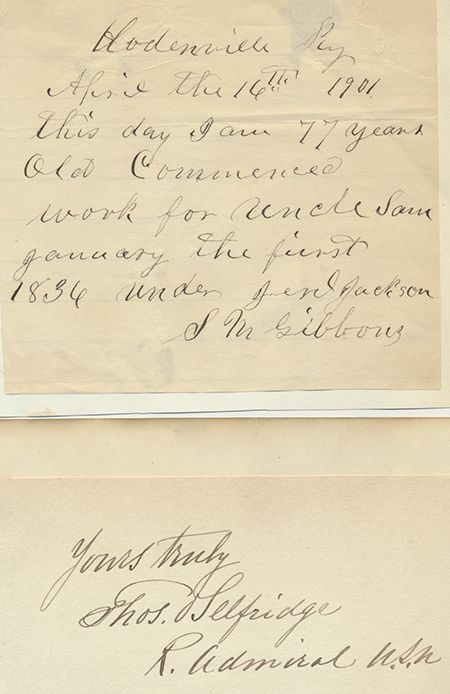 Hodenville Ky
April the 16th 1901
this day I am 77 years
Old Commenced
work for Uncle Sam
january the first
1836 under Jenl Jackson
S M Gibbons
Yours truly
Thos. O Selfridge
R. Admiral U.S.N